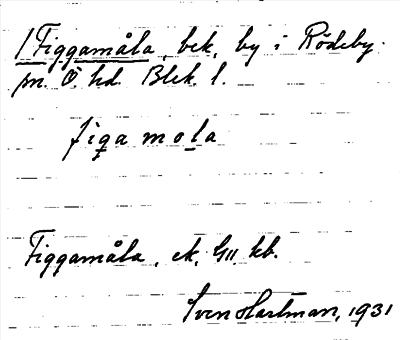 /Figgamåla, bek. by i Rödeby
sn. Ö. hd. Blek. l.
figa mola
Figgamåla, ek. G11 kb.
Sven Hartman, 1931